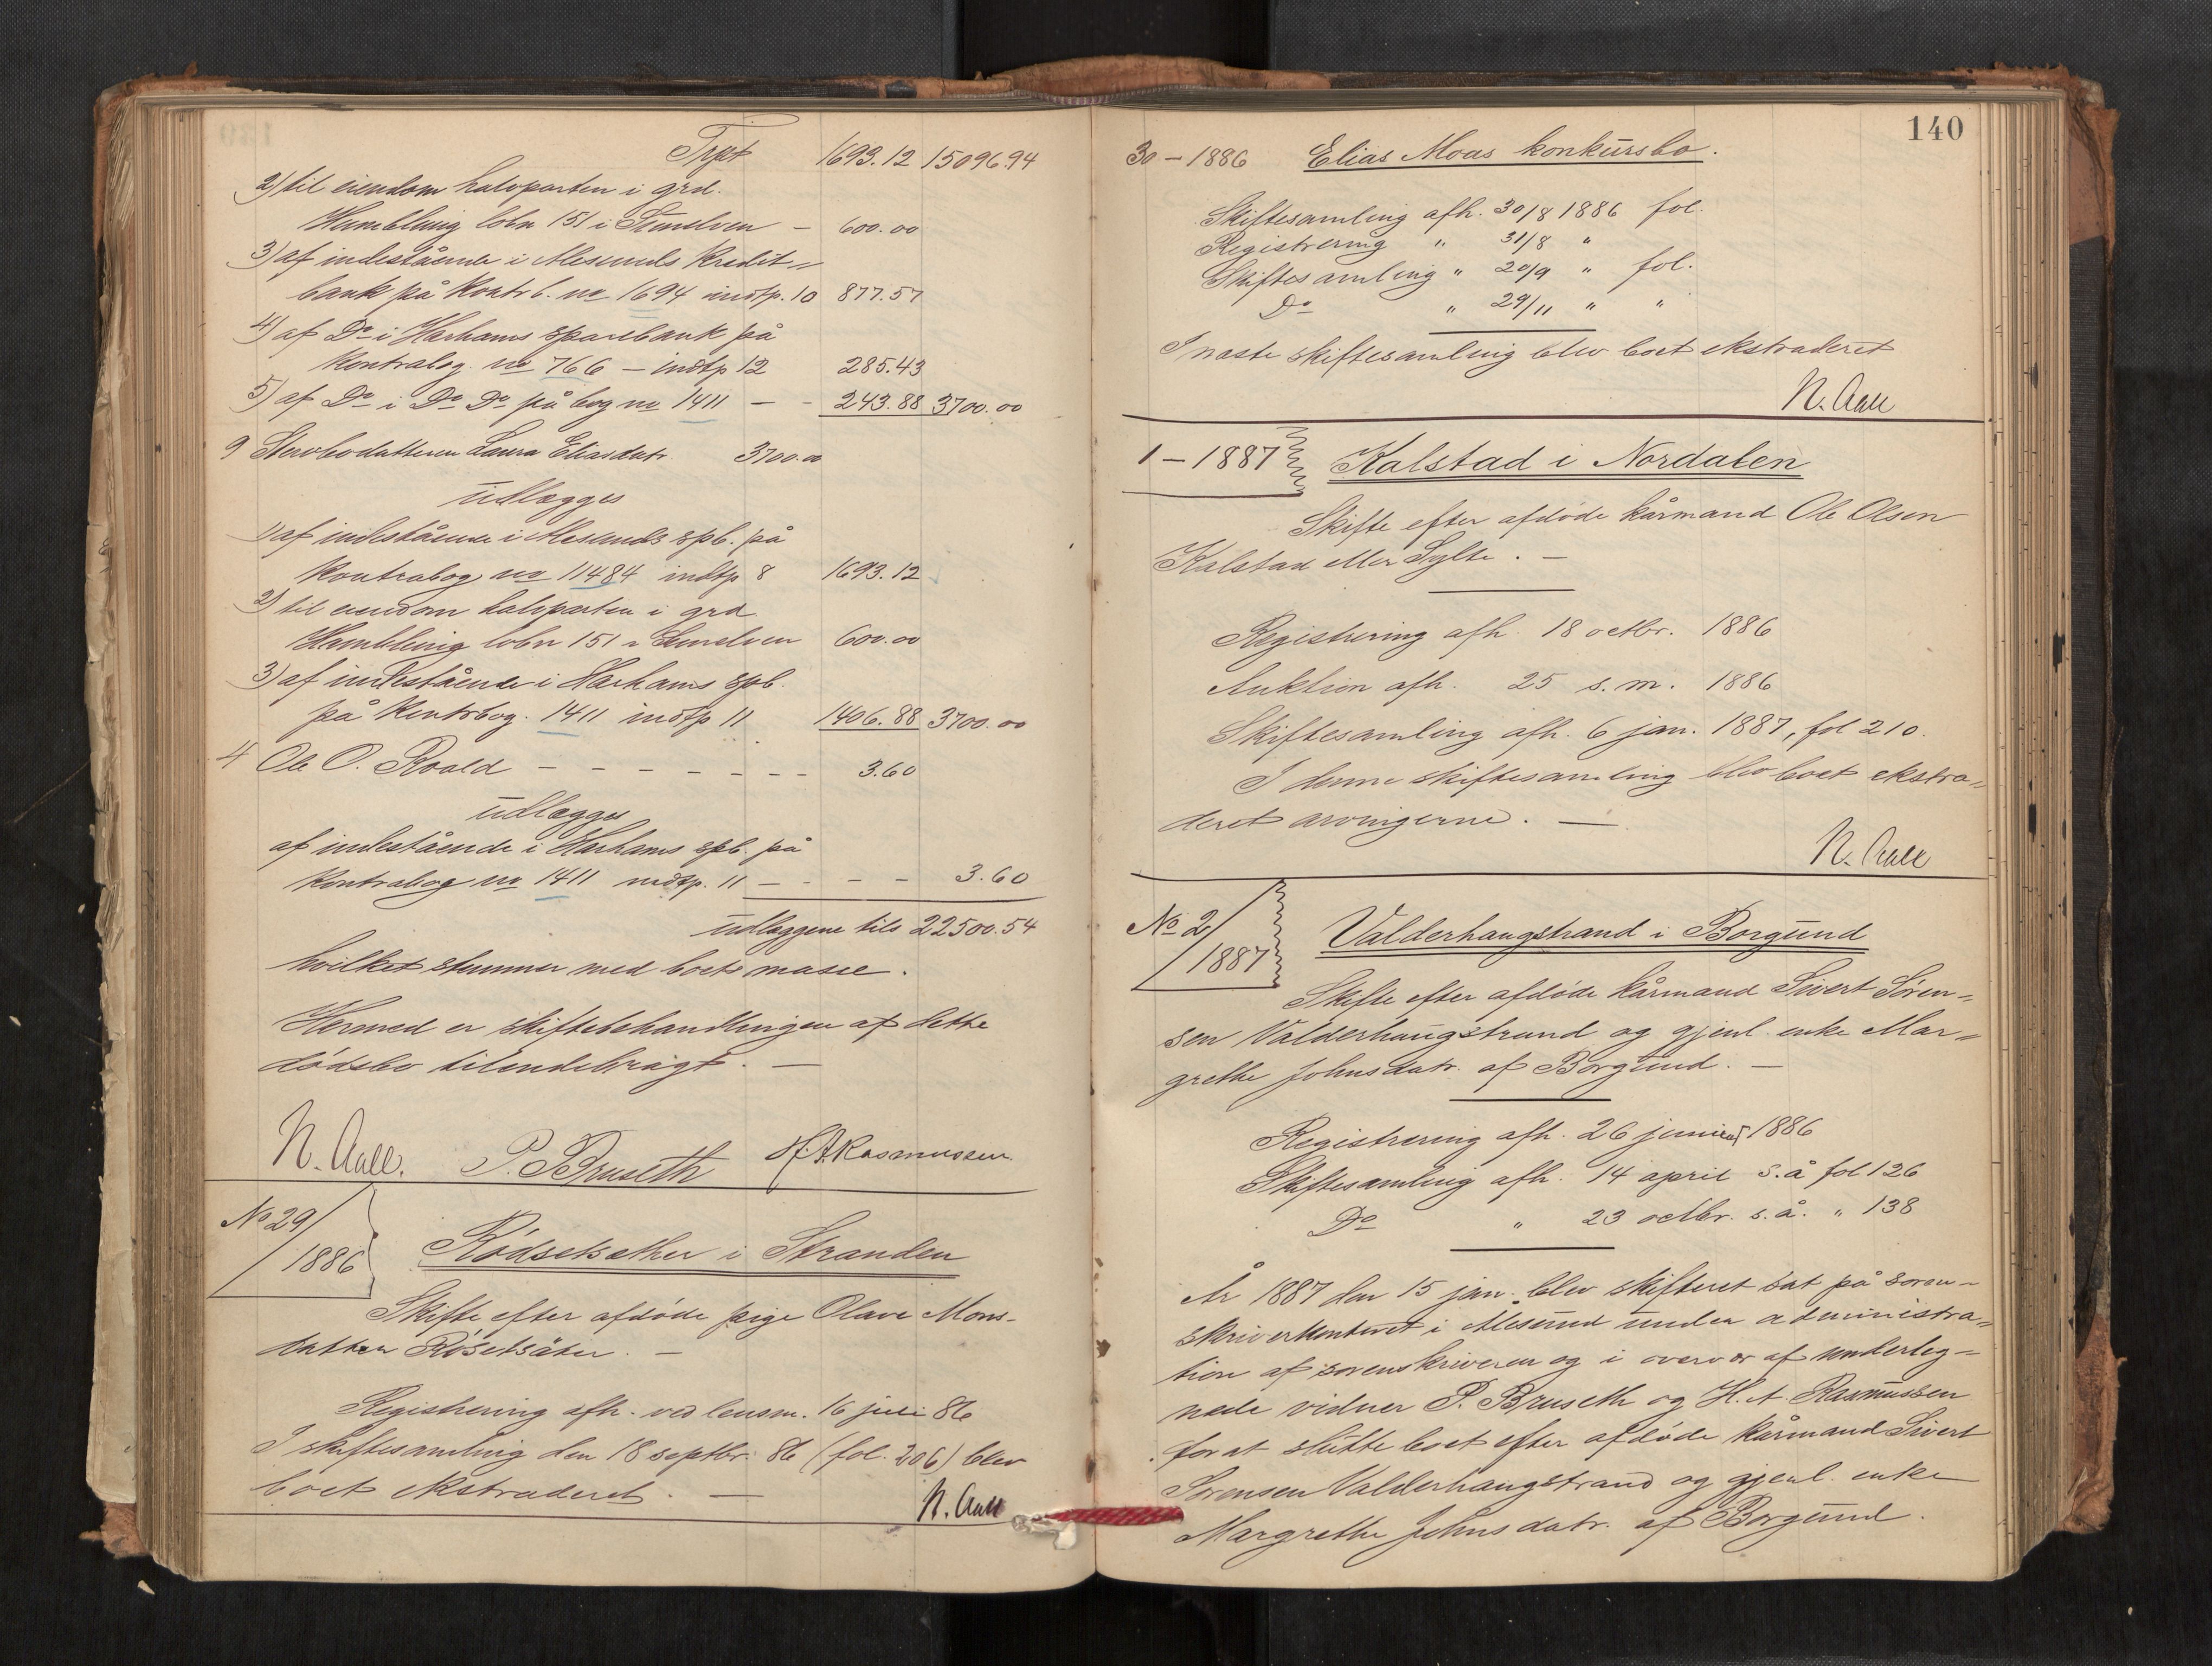 Trpt 1693.12 15096.94
2) til eiendom halvparten i grd.
Humblung lobn 151 i Sunelven - 600.00
3) af indestående i Alesunds Kredit=
bank på Kontrb. no 1694 indtp. 10 877.57
4) af Do i Harhams sparebank på
Kontrabog. no 766 - indtp 12 285.43
5) af Do i Do Do på bog no 1411 - - 243.88 3700.00
9 Stervbodatteren Laura Eliasdatr. 3700.00
udlægges
1) af indestående i Alesunds spb. på
Kontrabog no 11484 indtp 8 1693.12
2) til eiendom halvparten i grd
Humblung lobn 151 i Sunelven 600.00
3) af indestående i Harhams spb.
på Kontrbog. 1411 indtp 11 1406.88 3700.00
4 Ole O. Roald - - - - - - - 3.60
udlægges
af indestående i Harhams spb. på
Kontrabog no 1411 indtp. 11 - - - - 3.60
udlæggene tils 22500.54
hvilket stemmer med boets masse.
Hermed er skiftebehandlingen af dette
dødsbo tilendebragt. -
N. Aall. P. Bruseth H. A. Rasmussen
No 29/
1886
Rødsetsæther i Stranden
Skifte efter afdøde pige Olave Mons-
datter Røsetsäter. -
Registrering afh. ved lensm. 16 juli 86
I skiftesamling den 18 septbr. 86 (fol. 206) blev
boet ekstraderet. -
N. Aall
140
30 - 1886 Elias Moas konkursbo.
Skiftesamling afh. 30/8 1886 fol.
Registrering " 31/8 "
Skiftesamling " 20/9 " fol.
Do " 29/11 " "
I næste skiftesamling blev boet ekstraderet
N. Aall
1 - 1887 Kalstad i Nordalen
Skifte efter afdøde kårmand Ole Olsen
Kalstad eller Sylte. -
Registrering afh. 18 octbr. 1886
Auktion afh. 25 s. m. 1886
Skiftesamling afh. 6 jan. 1887, fol 210.
I denne skiftesamling blev boet ekstra=
deret arvingerne. -
N. Aall
No 2/
1887
Valderhaugstrand i Borgund
Skifte efter afdøde kårmand Sivert Søren=
sen Valderhaugstrand og gjenl. enke Mar=
grethe Johnsdatr. af Borgund. -
Registrering afh. 26 januar 1886
Skiftesamling afh. 14 april s. å fol 126
Do " 23 octbr. s. å. " 138
År 1887 den 15 jan. blev skifteret sat på soren-
skriverkontoret i Ålesund under administra=
tion af sorenskriveren og i overvær af underteg=
nede vidner P. Bruseth og H. A Rasmussen
for at slutte boet efter afdøde kårmand Sivert
Sørensen Valderhaugstrand og gjenl. enke
Margrethe Johnsdatr. af Borgund.